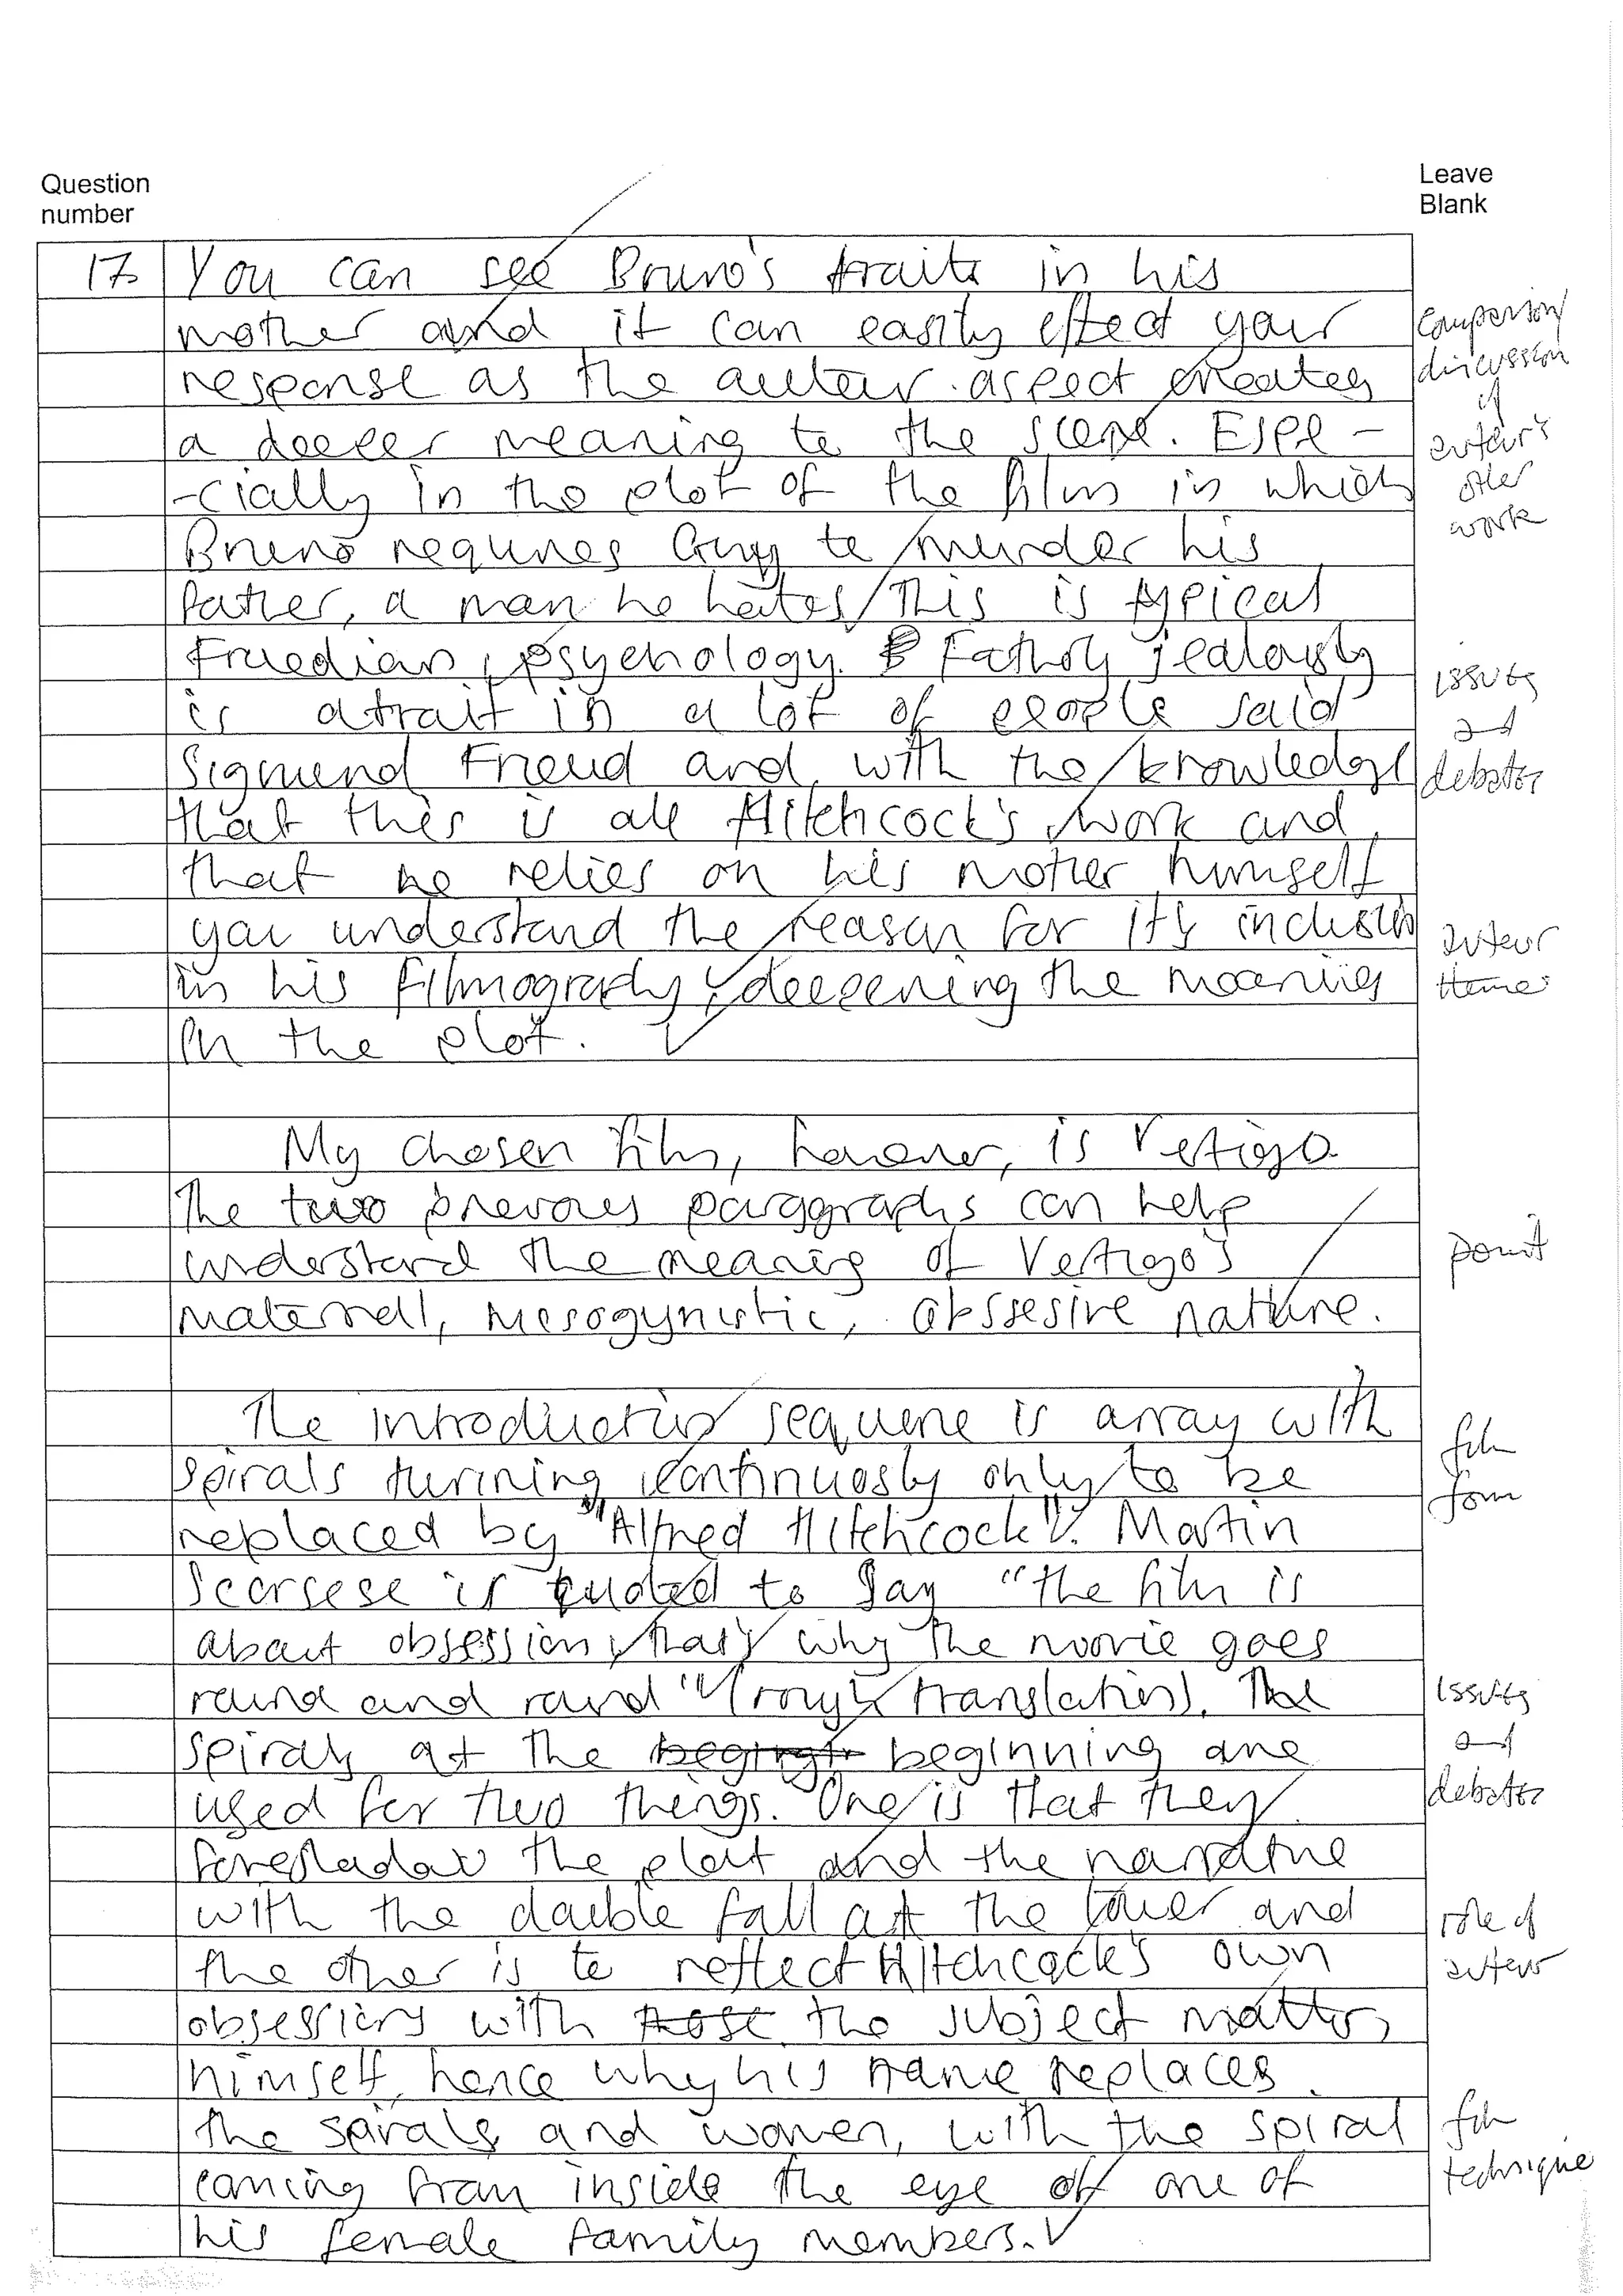 Question
number
Leave
Blank
17. You can see Bruno's traits in his
mother and it can easily effect your
response as the auteur aspect creates
a deeper meaning to the scene. Espe-
-cially in the plot of the film in which
Bruno requires Guy to murder his
father, a man he hates. This is typical
Fruedian psychology. Fatherly jealously
is a trait in a lot of people said
Sigmund Freud and with the knowledge
that this is all Hitchcock's work and
that he relies on his mother himself
you understand the reason for it's inclusion
in his filmography, deepening the meaning
in the plot.
My chosen film, however, is Vertigo.
The two previous paragraphs can help
understand the meaning of Vertigo's
maternal, mesogynistic, obssesive nature.
The introduction sequence is array with
spirals turning continuosly only to be
replaced by "Alfred Hitchcock". Martin
Scorsese is quoted to say "the film is
about obsession, that's why the movie goes
round and round" (rough translation). The
spirals at the beginning are
used for two things. One is that they
foreshadow the plot and the narrative
with the double fall at the tower and
the other is to reflect Hitchcock's own
obsessions with those the subject matter,
himself, hence why his name replaces
the spirals and women, with the spiral
coming from inside the eye of one of
his female family members.
comparison/
discussion
of
auteur's
other
work
issues
and
debates
auteur
themes
point
film
form
issues
and
debates
role of
auteur
film
technique